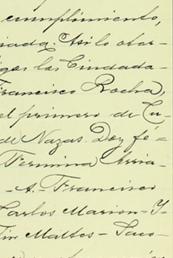 cumplimiento,
iada. Así lo otor-
gan los Ciudada-
Francisco Rocha,
el primero de Cu-
de Nazas. Doy fé-
Vermina Arria-
A. Francisco
Carlos Marion-
Maltos-